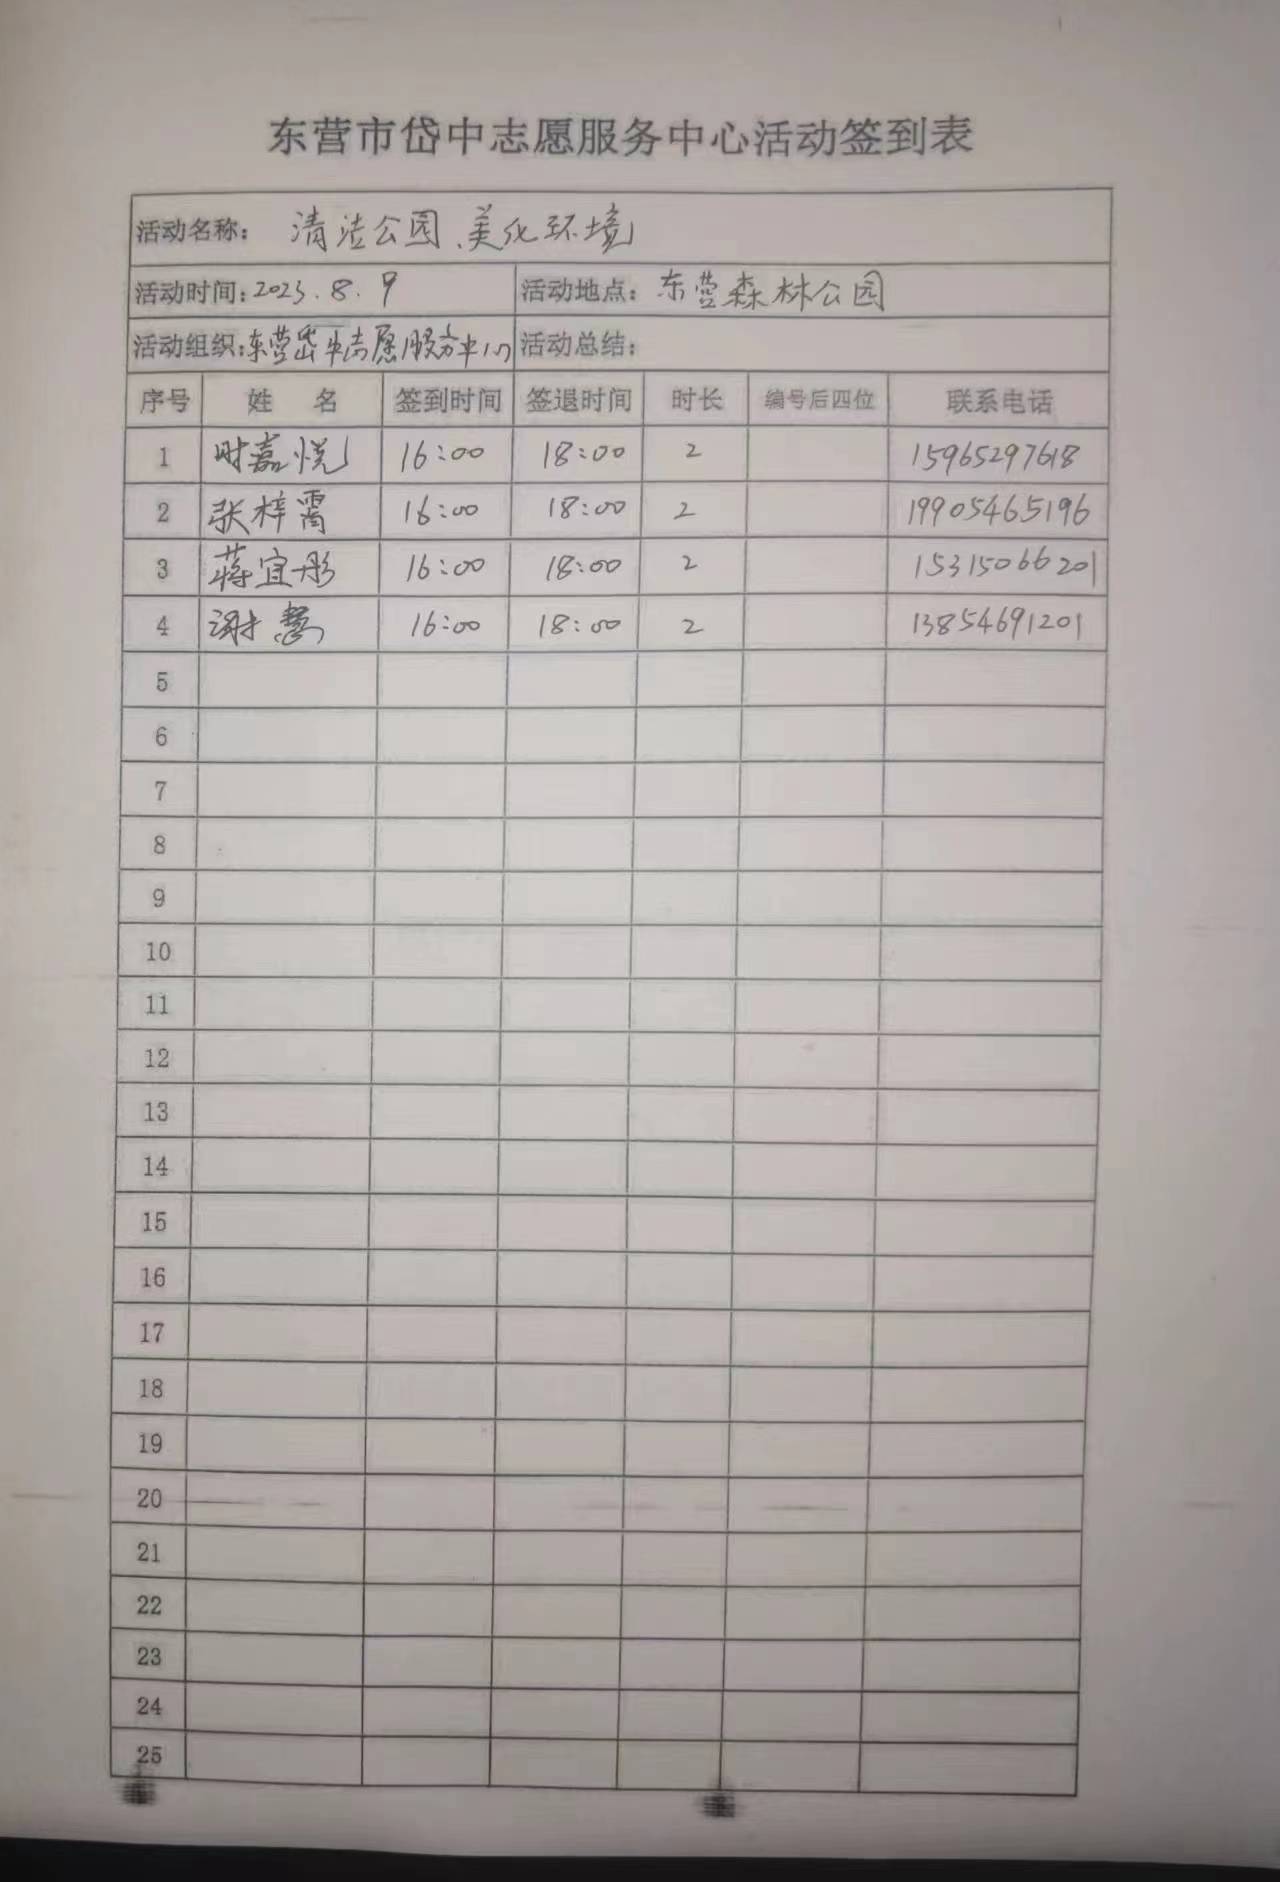 东营市岱中志愿服务中心活动签到表
活动名称： 清洁公园、美化环境
活动时间：2023.8.9 活动地点： 东营森林公园
活动组织：东营岱中志愿服务中心 活动总结：
序号 姓 名 签到时间 签退时间 时长 编号后四位 联系电话
1 时嘉悦 16:00 18:00 2 15965297618
2 张梓霄 16:00 18:00 2 19905465196
3 蒋宜彤 16:00 18:00 2 15315066201
4 谢慧 16:00 18:00 2 13854691201
5
6
7
8
9
10
11
12
13
14
15
16
17
18
19
20
21
22
23
24
25